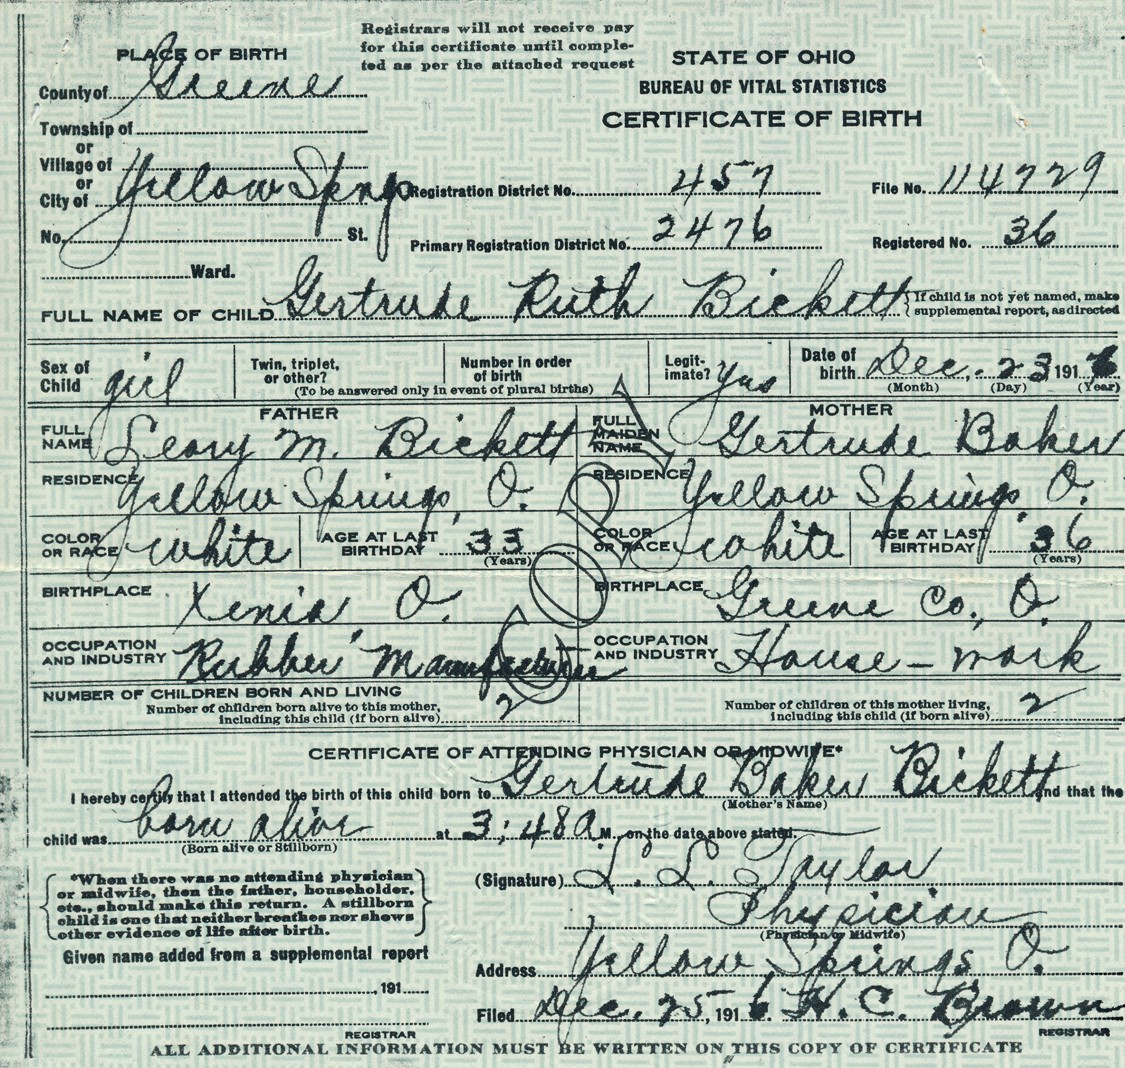 Registrars will not receive pay
for this certificate until comple-
ted as per the attached request
PLACE OF BIRTH
STATE OF OHIO
BUREAU OF VITAL STATISTICS
CERTIFICATE OF BIRTH
County of Greene
Township of
or
Village of
or
City of Yellow Spngs
Registration District No. 457 File No. 114729
No. St.
Primary Registration District No. 2476 Registered No. 36
Ward.
FULL NAME OF CHILD Gertrude Ruth Bickett { If child is not yet named, make
supplemental report, as directed
Sex of
Child girl
Twin, triplet,
or other?
Number in order
of birth
(To be answered only in event of plural births)
Legit-
imate? Yes
Date of
birth Dec. 23 1916
(Month) (Day) (Year)
FATHER
FULL
NAME Leary M. Bickett
RESIDENCE Yellow Springs, O.
COLOR
OR RACE white
AGE AT LAST
BIRTHDAY 33
(Years)
BIRTHPLACE Xenia O.
OCCUPATION
AND INDUSTRY Rubber Manufacturer
MOTHER
FULL
MAIDEN
NAME Gertrude Baker
RESIDENCE Yellow Springs, O.
COLOR
OR RACE white
AGE AT LAST
BIRTHDAY 36
(Years)
BIRTHPLACE Greene Co., O.
OCCUPATION
AND INDUSTRY House-work
COPY
NUMBER OF CHILDREN BORN AND LIVING
Number of children born alive to this mother,
including this child (if born alive) 2
Number of children of this mother living,
including this child (if born alive) 2
CERTIFICATE OF ATTENDING PHYSICIAN OR MIDWIFE*
I hereby certify that I attended the birth of this child born to Gertrude Baker Bickett and that the
(Mother's Name)
child was born alive at 3:48 A M. on the date above stated.
(Born alive or Stillborn)
*When there was no attending physician
or midwife, then the father, householder,
etc., should make this return. A stillborn
child is one that neither breathes nor shows
other evidence of life after birth.
(Signature) L. L. Taylor
Physician
(Physician or Midwife)
Given name added from a supplemental report
Address Yellow Springs O.
, 191
Filed Dec. 25, 1916 H. C. Brown
REGISTRAR
REGISTRAR
ALL ADDITIONAL INFORMATION MUST BE WRITTEN ON THIS COPY OF CERTIFICATE